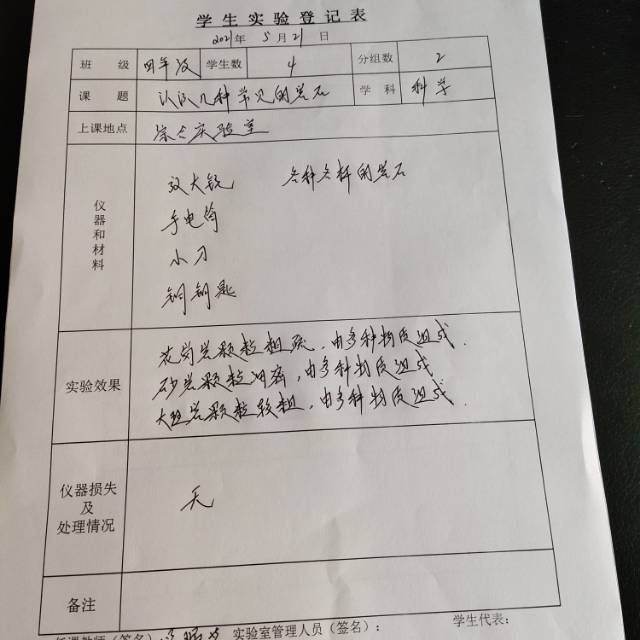 学生实验登记表
2021年 5月21日
班 级 四年级 学生数 4 分组数 2
课 题 认识几种常见的岩石 学 科 科学
上课地点 综合实验室
仪器和材料
放大镜 各种各样的岩石
手电筒
小刀
铜钥匙
实验效果
花岗岩颗粒粗糙,由多种物质组成.
砂岩颗粒细密,由多种物质组成
大理岩颗粒较粗,由多种物质组成.
仪器损失
及
处理情况
无
备注
任课教师(签名) 实验室管理人员(签名): 学生代表: